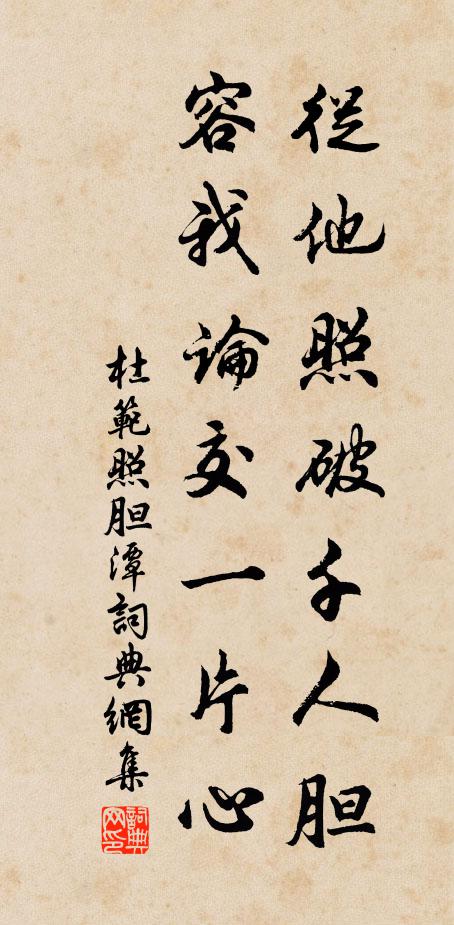 從他照破千人胆
容我論交一片心
杜範照胆潭詞典網集
詞典网印